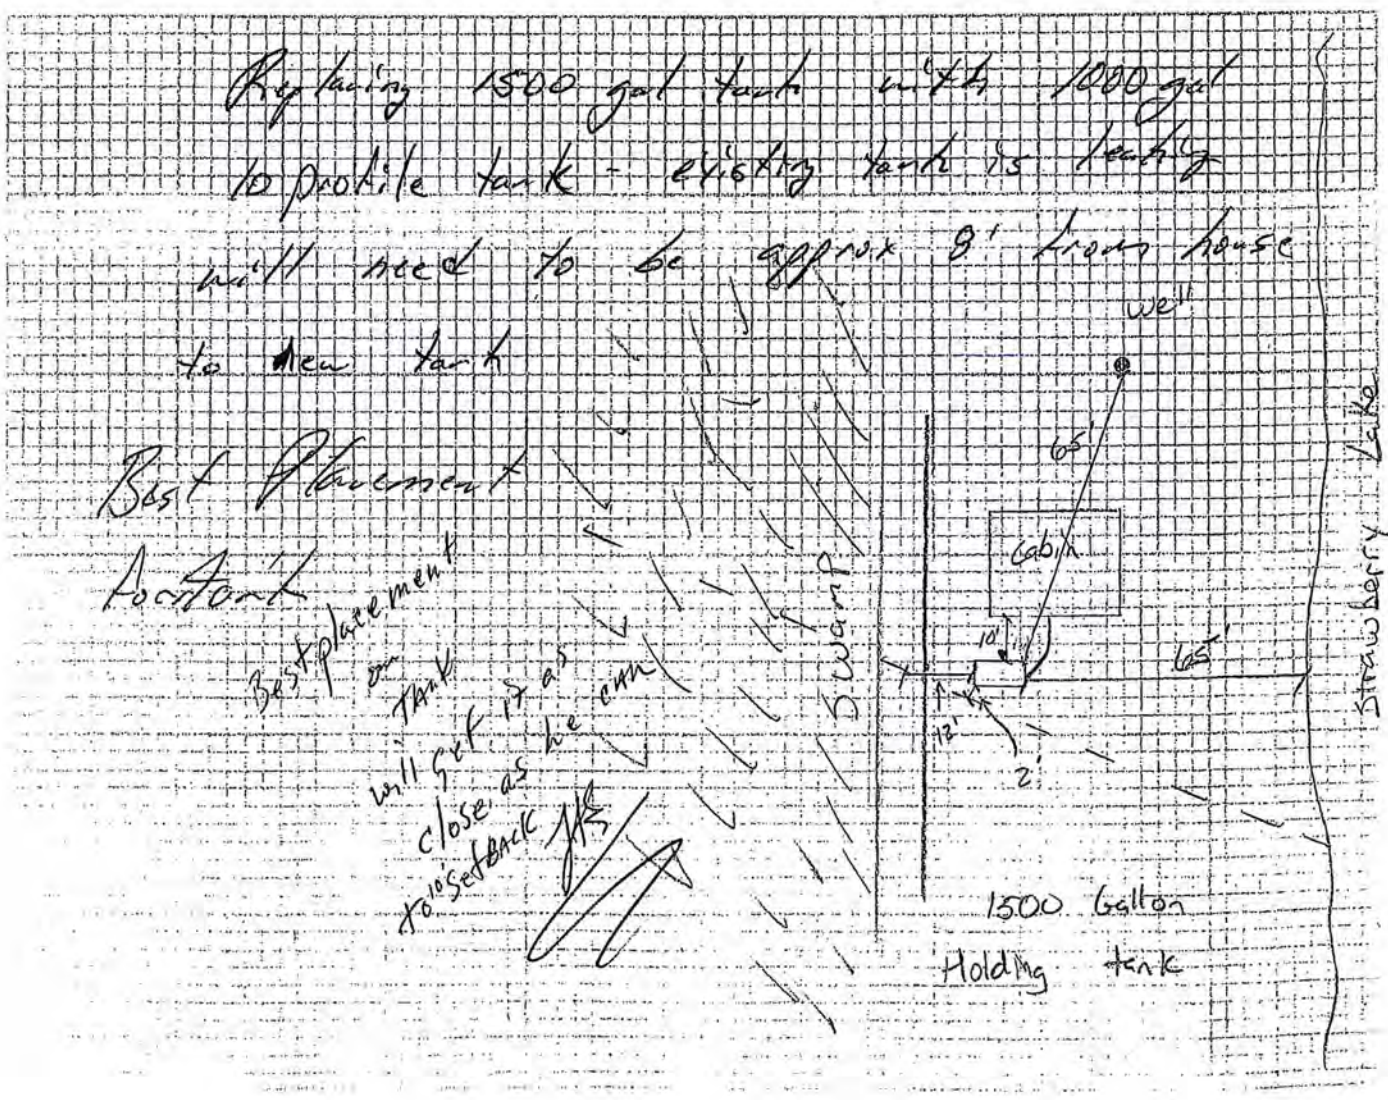 Replacing 1500 gal tank with 1000 gal
lo profile tank - existing tank is leaking
will need to be approx 8' from house
to new tank
Best Placement
for Tank
Best placement
on
TANK
will get it as
close as he can
to 10' SetBACK
Swamp
well
65'
cabin
10'
65'
12'
2'
Strawberry Lake
1500 Gallon
Holding tank